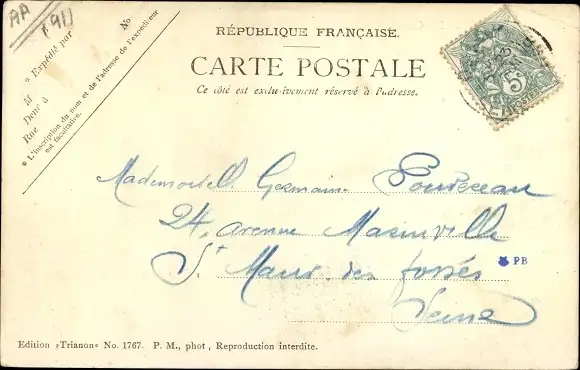 AA
(91)
RÉPUBLIQUE FRANÇAISE.
CARTE POSTALE
Ce côté est exclusivement réservé à l'adresse.
* Expédié par
M
Demt à
Rue
No
* L'inscription du nom et de l'adresse de l'expéditeur
est facultative.
5
POSTES
Mademoiselle Germaine
24, avenue Masinville
St Maur des fossés
Seine
PB
Edition »Trianon« No. 1767. P. M., phot, Reproduction interdite.